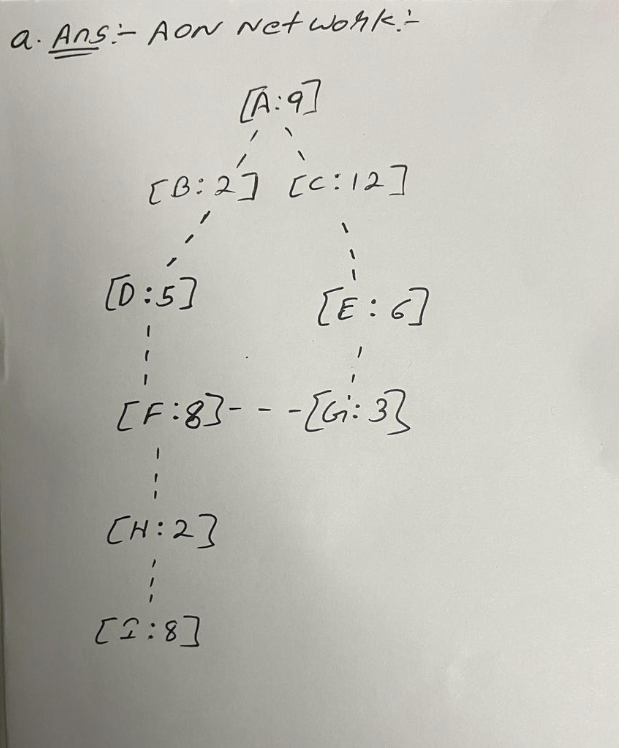 a. Ans:- AON Network:-
[A:9]
[B:2] [C:12]
[D:5] [E:6]
[F:8]---[G:3]
[H:2]
[I:8]